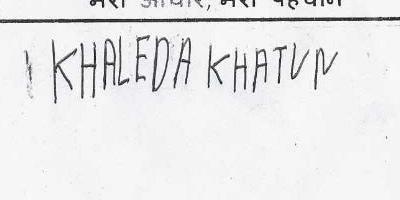 मेरा आधार, मेरी पहचान
KHALEDA KHATUN